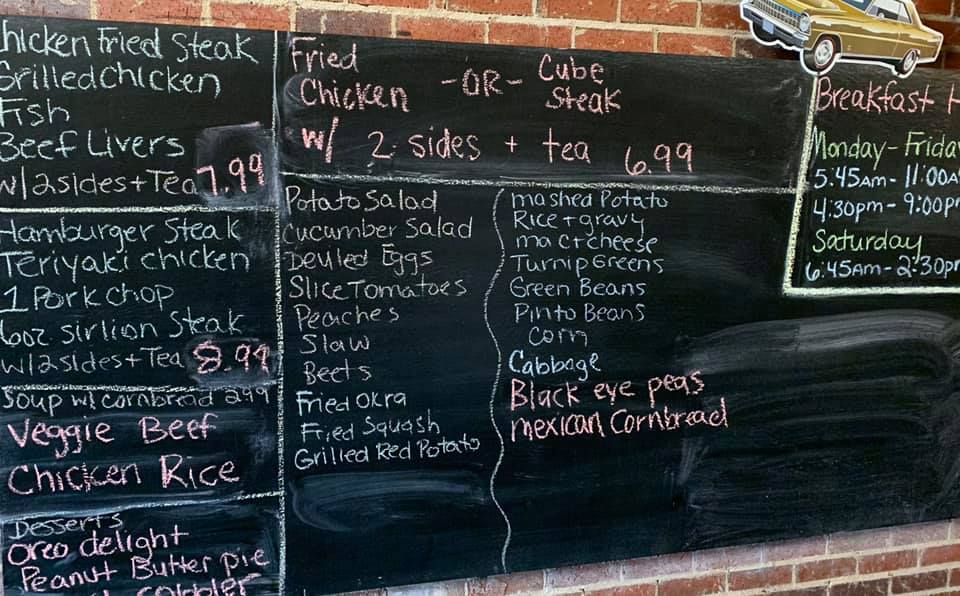 Chicken Fried Steak
Grilled chicken
Fish
Beef Livers
w/2sides+Tea 7.99
Hamburger Steak
Teriyaki chicken
1 Pork chop
6oz sirlion Steak
w/2sides+Tea 8.99
Soup w/ cornbread 2.99
Veggie Beef
Chicken Rice
Desserts
Oreo delight
Peanut Butter pie
cobbler
Fried
Chicken -OR- Cube
Steak
w/ 2 sides + tea 6.99
Potato Salad
Cucumber Salad
Deviled Eggs
Slice Tomatoes
Peaches
Slaw
Beets
Fried Okra
Fried Squash
Grilled Red Potato
mashed Potato
Rice + gravy
mac+cheese
Turnip Greens
Green Beans
Pinto Beans
Corn
Cabbage
Black eye peas
mexican Cornbread
Breakfast H
Monday-Friday
5.45AM-11:00A
4:30pm-9:00pm
Saturday
6:45Am-2:30pm